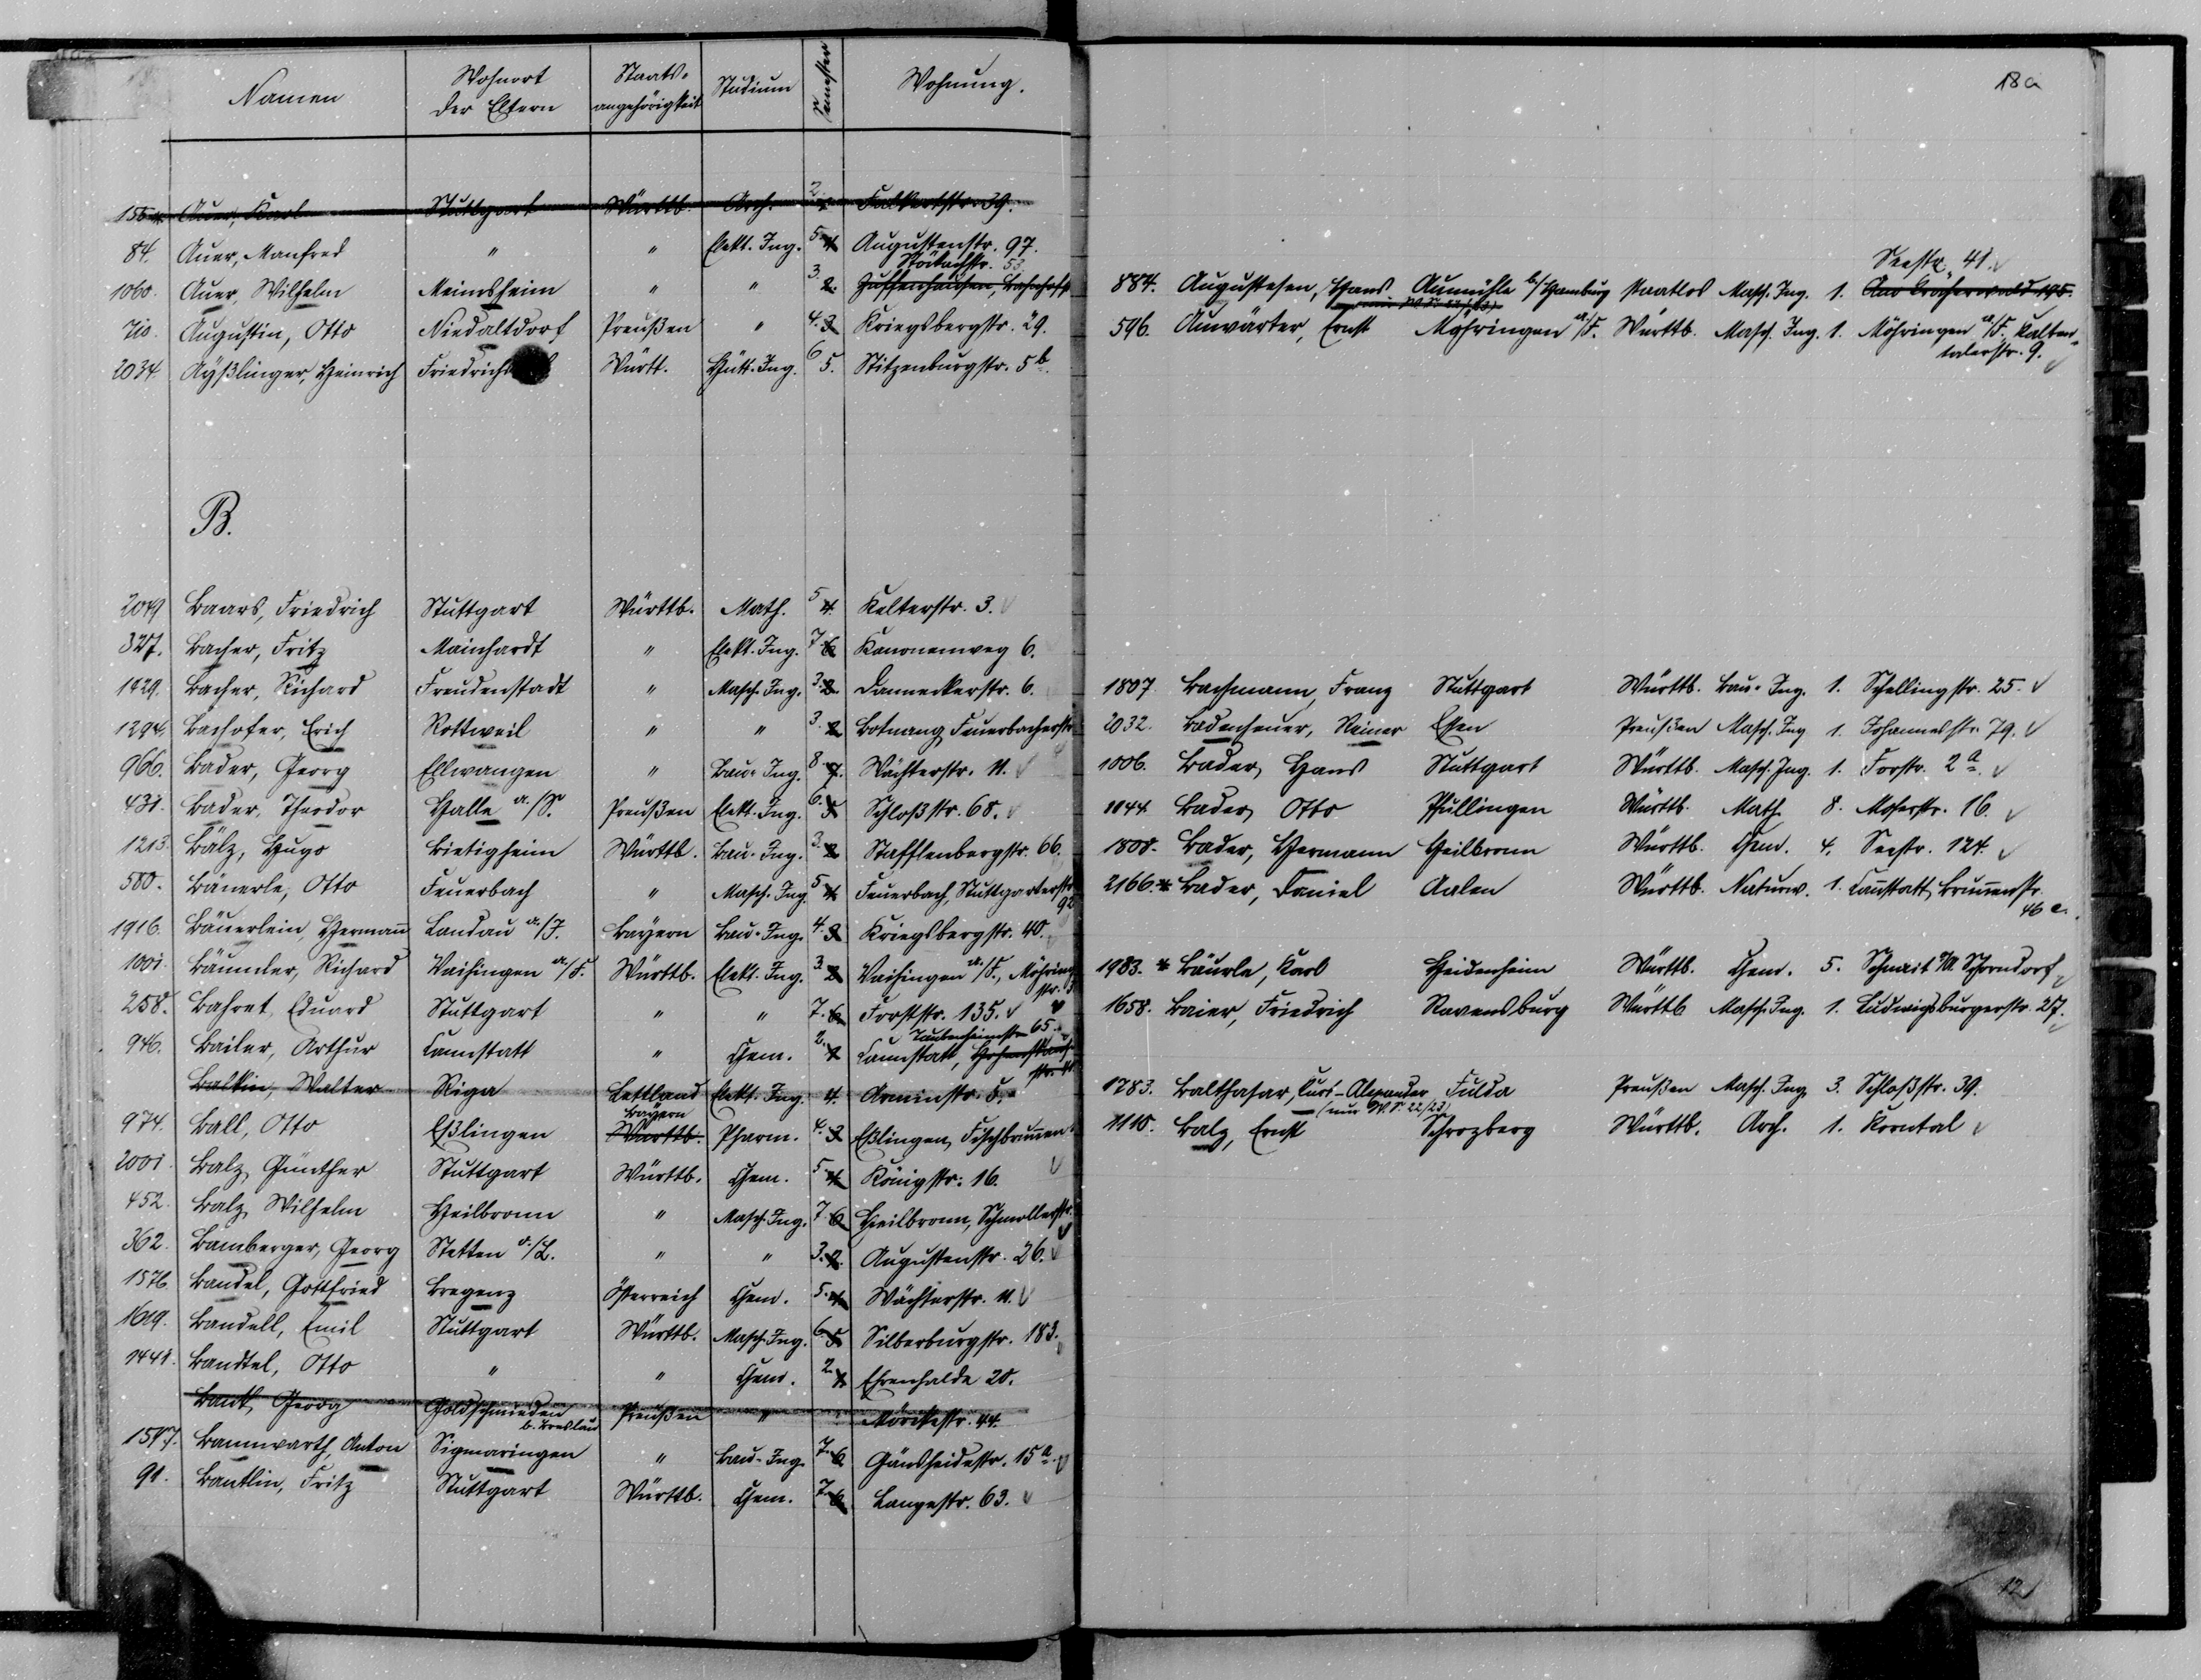 Namen Wohnort der Eltern Staats-angehörigkeit Studium Semester Wohnung.
155 Auer, Karl Stuttgart Württb. Arch. 2. Falkertstr. 39.
84. Auer, Manfred " " Elekt. Ing. 5. 4. Augustenstr. 97.
Stöckachstr. 53
1060. Auer, Wilhelm Meimsheim " " 3. 2. Zuffenhausen, Bahnhofstr
710. Augustin, Otto Niedaltdorf Preußen " 4. 3. Kriegsbergstr. 29.
2034. Ayßlinger, Heinrich Friedrichs Württ. Hütt. Ing. 6 5. Stitzenburgstr. 5b.
B.
2049 Baars, Friedrich Stuttgart Württb. Math. 5 4. Kelterstr. 3.
327. Bacher, Fritz Mainhardt " Elekt. Ing. 7 6. Kanonenweg 6.
1429. Bacher, Richard Freudenstadt " Masch. Ing. 3. 2. Danneckerstr. 6.
1294. Bachofer, Erich Rottweil " " 3. 2. Botnang Feuerbacherstr
966. Bader, Georg Ellwangen " Bau-Ing. 8 7. Wächterstr. 11.
431. Bader, Theodor Halle a./S. Preußen Elekt. Ing. 6. 5 Schloßstr. 68.
1213. Bälz, Hugo Bietigheim Württb. Bau-Ing. 3. 2 Stafflenbergstr. 66.
580. Bäuerle, Otto Feuerbach " Masch. Ing. 5 4 Feuerbach, Stuttgarterstr
92
1916. Bäuerlein, Hermann Landau a./I. Bayern Bau-Ing. 4. 3 Kriegsbergstr. 40.
1001. Bäumler, Richard Vaihingen a./F. Württb. Elekt. Ing. 3. 2 Vaihingen a./F., Möhring
str. 3
258. Bahret, Eduard Stuttgart " " 7. 6. Forststr. 135.
Taubenheimstr 65.
946. Bailer, Arthur Cannstatt " Chem. 2. 1 Cannstatt, Hohenstauf
str.
Balkin, Walter Riga Lettland Elekt. Ing. 4. Arminstr. 8.
Bayern
974. Ball, Otto Eßlingen Württb. Pharm. 4. 3 Eßlingen, Fischbrunnen
2001. Balz, Günther Stuttgart Württb. Chem. 5. 4 Königstr. 16.
452. Balz, Wilhelm Heilbronn " Masch. Ing. 7 6. Heilbronn, Schmollerstr.
362. Bamberger, Georg Stetten a./L. " " 3. 2. Augustenstr. 26.
1576. Bandel, Gottfried Bregenz Österreich Chem. 5. 4 Wächterstr. 11.
1619. Bandell, Emil Stuttgart Württb. Masch. Ing. 6 5 Silberburgstr. 183.
1441. Bandtel, Otto " " Chem. 2. 1 Ehrenhalde 20.
Bank, Georg Goldschmieden b. Breslau Preußen " Mörikestr. 44.
1547. Bannwarth, Anton Sigmaringen " Bau-Ing. 7. 6. Gänsheidestr. 15a.
91. Bantlin, Fritz Stuttgart Württb. Chem. 7. 6. Langestr. 63.
18a
Seestr. 41.
884. Augustesen, Hans Aumühle b/Hamburg staatlos Masch. Ing. 1. Am Kräherwald 195.
(nur W. S. 22/23)
596. Auwärter, Ernst Möhringen a./F. Württb. Masch. Ing. 1. Möhringen a/F. Kalten-
talerstr. 9.
1807. Bachmann, Franz Stuttgart Württb. Bau-Ing. 1. Schellingstr. 25.
2032. Badenheuer, Reiner Essen Preußen Masch. Ing 1. Johannesstr. 79.
1006. Bader, Hans Stuttgart Württb. Masch. Ing. 1. Forststr. 2a.
1044. Bader, Otto Pfullingen Württb. Math. 8. Moserstr. 16.
1808. Bader, Hermann Heilbronn Württb. Chem. 4. Seestr. 124.
2166. * Bader, Daniel Aalen Württb. Naturw. 1. Cannstatt, Brunnenstr.
46 a.
1983. * Bäurle, Karl Heidenheim Württb. Chem. 5. Schnait Schorndorf
1658. Baier, Friedrich Ravensburg Württb Masch. Ing. 1. Ludwigsburgerstr. 27.
1783. Balthasar, Curt-Alexander Fulda Preußen Masch. Ing. 3. Schloßstr. 39.
(nur W. S. 22/23)
1110. Balz, Ernst Schrozberg Württb. Arch. 1. Korntal
12